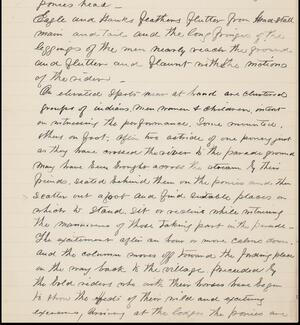 ponies head —
Eagle and Hawks feathers flutter from Headstall
main and tail and the long fringes of the
leggings of the men nearly reach the ground
and flutter and flaunt with the motions
of the riders —
On elevated spots near at hand are clustered
groups of indians, men women & children, intent
on witnessing the performance. Some mounted,
others on foot. often two astride of one poney just
as they have crossed the river to the parade ground
may have been brought across the stream by their
friends, seated behind them on the ponies and then
scatter out afoot and find suitable places on
which to stand, sit or recline while witnessing
the manouvres of those taking part in the parade —
The excitement after an hour or more calms down.
and the column moves off toward the fording place
on the way back to the village, preceded by
the bold riders who with their horses have began
to show the effects of their wild and exciting
exercise, arriving at the lodges the ponies are